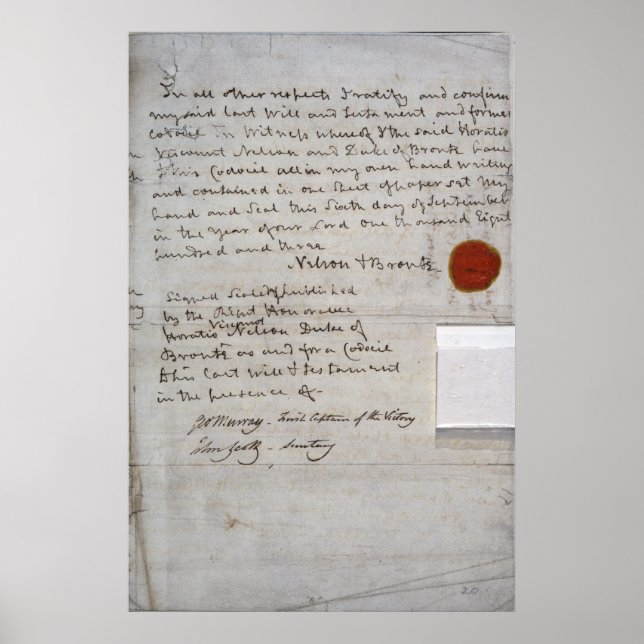 In all other respects I ratify and confirm
my said Last Will and Testament and former
Codicil In Witness whereof I the said Horatio
Viscount Nelson and Duke of Bronte have
to this Codicil all in my own hand writing
and contained in one Sheet of paper set My
hand and Seal this Sixth day of September
in the Year of our Lord One thousand Eight
hundred and three
Nelson & Bronte
Signed Sealed & published
by the Right Honorable
Viscount
Horatio Nelson Duke of
Bronte as and for a Codicil
to his Last Will & Testament
in the presence of -
Geo Murray - First Captain of the Victory
John Scott - Secretary
20